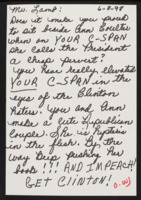 Mr. Lamb: 6-8-98
Does it make you proud
to sit beside Ann Coulter
when on YOUR C-SPAN
she calls the President
a chief pervert?
You have really elevated
YOUR C-SPAN in the
eyes of the Clinton
Haters. You and Ann
make a cute Republican
Couple! She is hysteria
in the flesh. By the
way Keep pushing her
book !!! AND IMPEACH!
GET CLINTON!